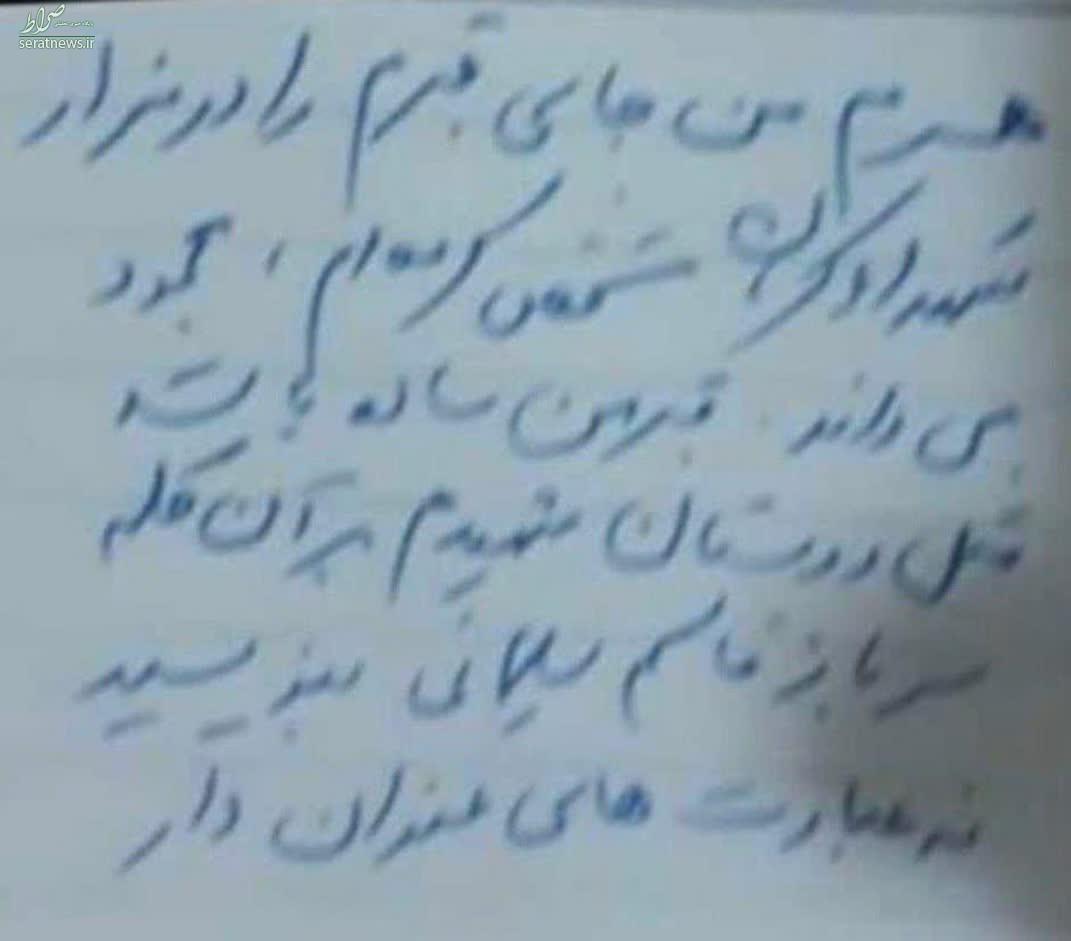 صراط
seratnews.ir
همسرم من جای قبرم را در مزار
شهدا کرمان مشخص کرده ام، محمود
می داند. قبر من ساده باشد
مثل دوستان شهیدم بر آن کلمه
سرباز قاسم سلیمانی بنویسید
نه عبارت های عنوان دار